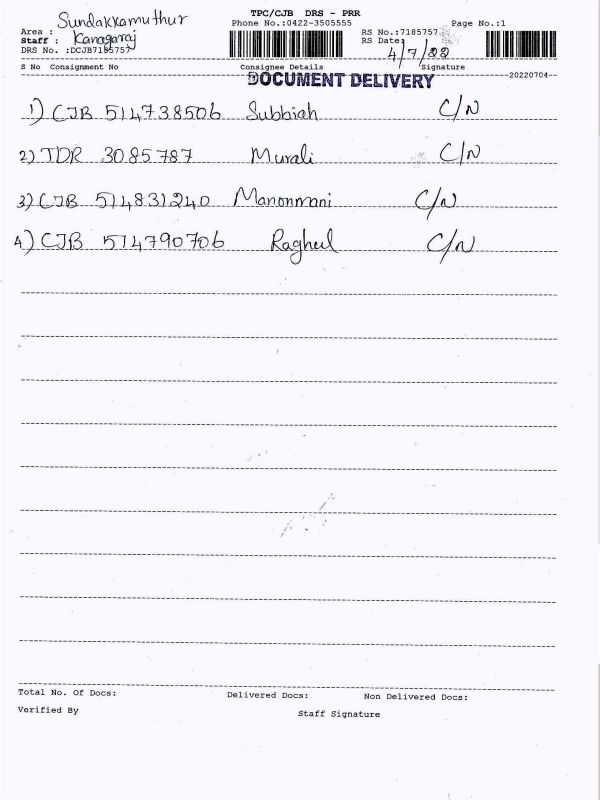 TPC/CJB DRS - PRR
Sundakkamuthur
Area :
Phone No.:0422-3505555
Page No.:1
Staff : Kanagaraj
RS No.:7185757
DRS No. :DCJB7185757
RS Date: 4/7/22
S No Consignment No Consignee Details Signature
DOCUMENT DELIVERY
--20220704--
1) CJB 514738506 Subbiah C/N
2) TDR 3085787 Murali C/N
3) CJB 514831240 Manonmani C/N
4) CJB 514790706 Raghul C/N
Total No. Of Docs: Delivered Docs: Non Delivered Docs:
Verified By Staff Signature